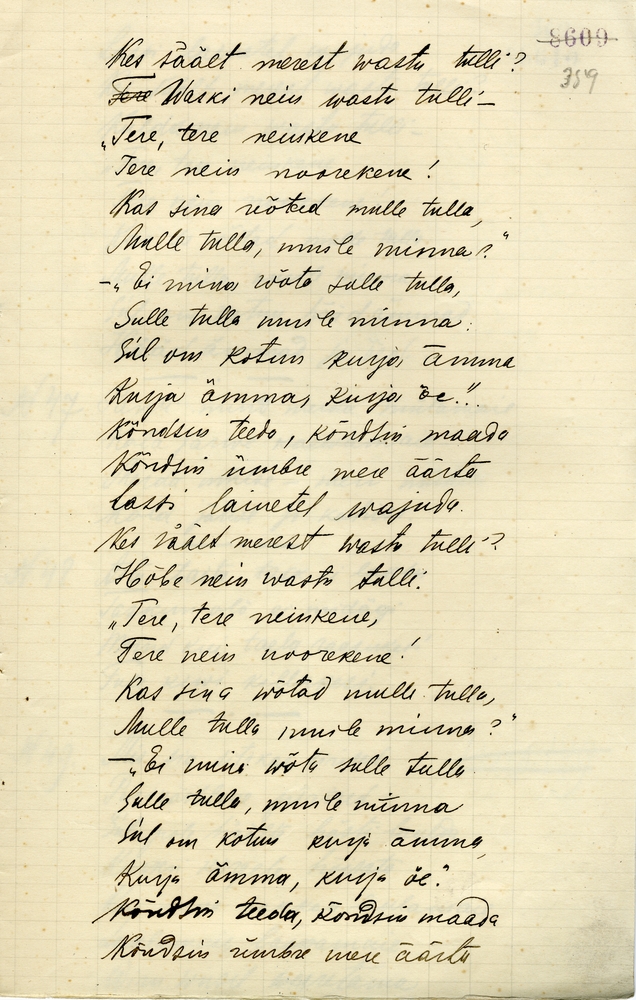 8609
359
Kes säält merest wastu tulli?
Tere Waski neiu wastu tulli –
„Tere, tere neiukene
Tere neiu noorekene!
Kas sina wõtad mulle tulla,
Mulle tulla, muile minna?"
–„Ei mina wõta sulle tulla,
Sulle tulla muile minna.
Sul om kotun kurja ämma
Kurja ämma, kurja õe!".
Kõndsin teeda, kõndsin maada
Kõndsin ümbre mere äärta
Lassi lainetel wajuda.
Kes säält merest wastu tulli?
Hõbe neiu wastu tulli.
„Tere, tere neiukene,
Tere neiu noorekene!
Kas sina wõtad mulle tulla,
Mulle tulla muile minna?"
–„Ei mina wõta sulle tulla
Sulle tulla, muile minna
Sul om kotun kurja ämma,
Kurja ämma, kurja õe".
Kõndsin teeda, kõndsin maada
Kõndsin ümbre mere äärta